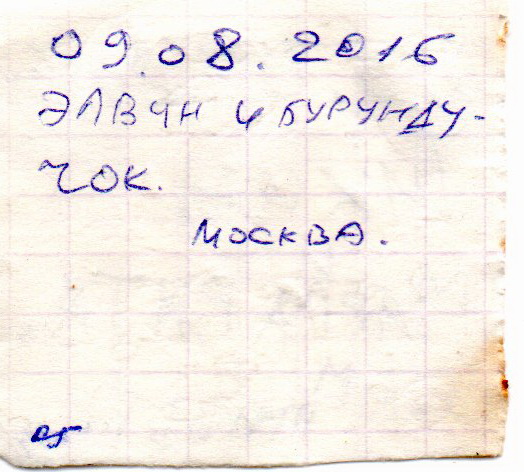 09.08.2016
ЭЛВИН И БУРУНДУ-
ЧОК.
МОСКВА.